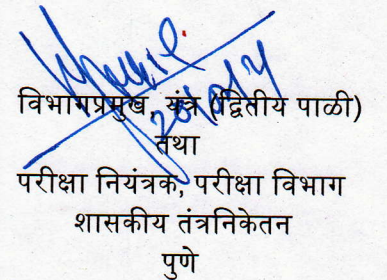 विभागप्रमुख, यंत्र (द्वितीय पाळी)
तथा
परीक्षा नियंत्रक, परीक्षा विभाग
शासकीय तंत्रनिकेतन
पुणे